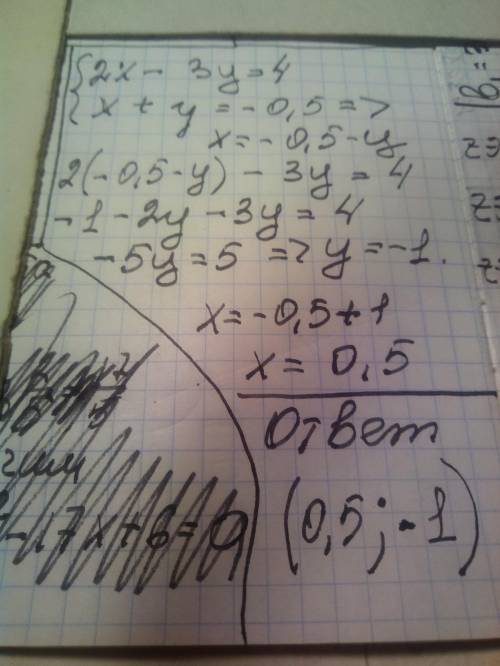 {2x - 3y = 4
{x + y = -0,5 =>
x = -0,5 - y
2(-0,5 - y) - 3y = 4
-1 - 2y - 3y = 4
-5y = 5 => y = -1.
x = -0,5 + 1
x = 0,5
Ответ
(0,5; -1)
-17x+6=0
|b₁ =
z=
z=